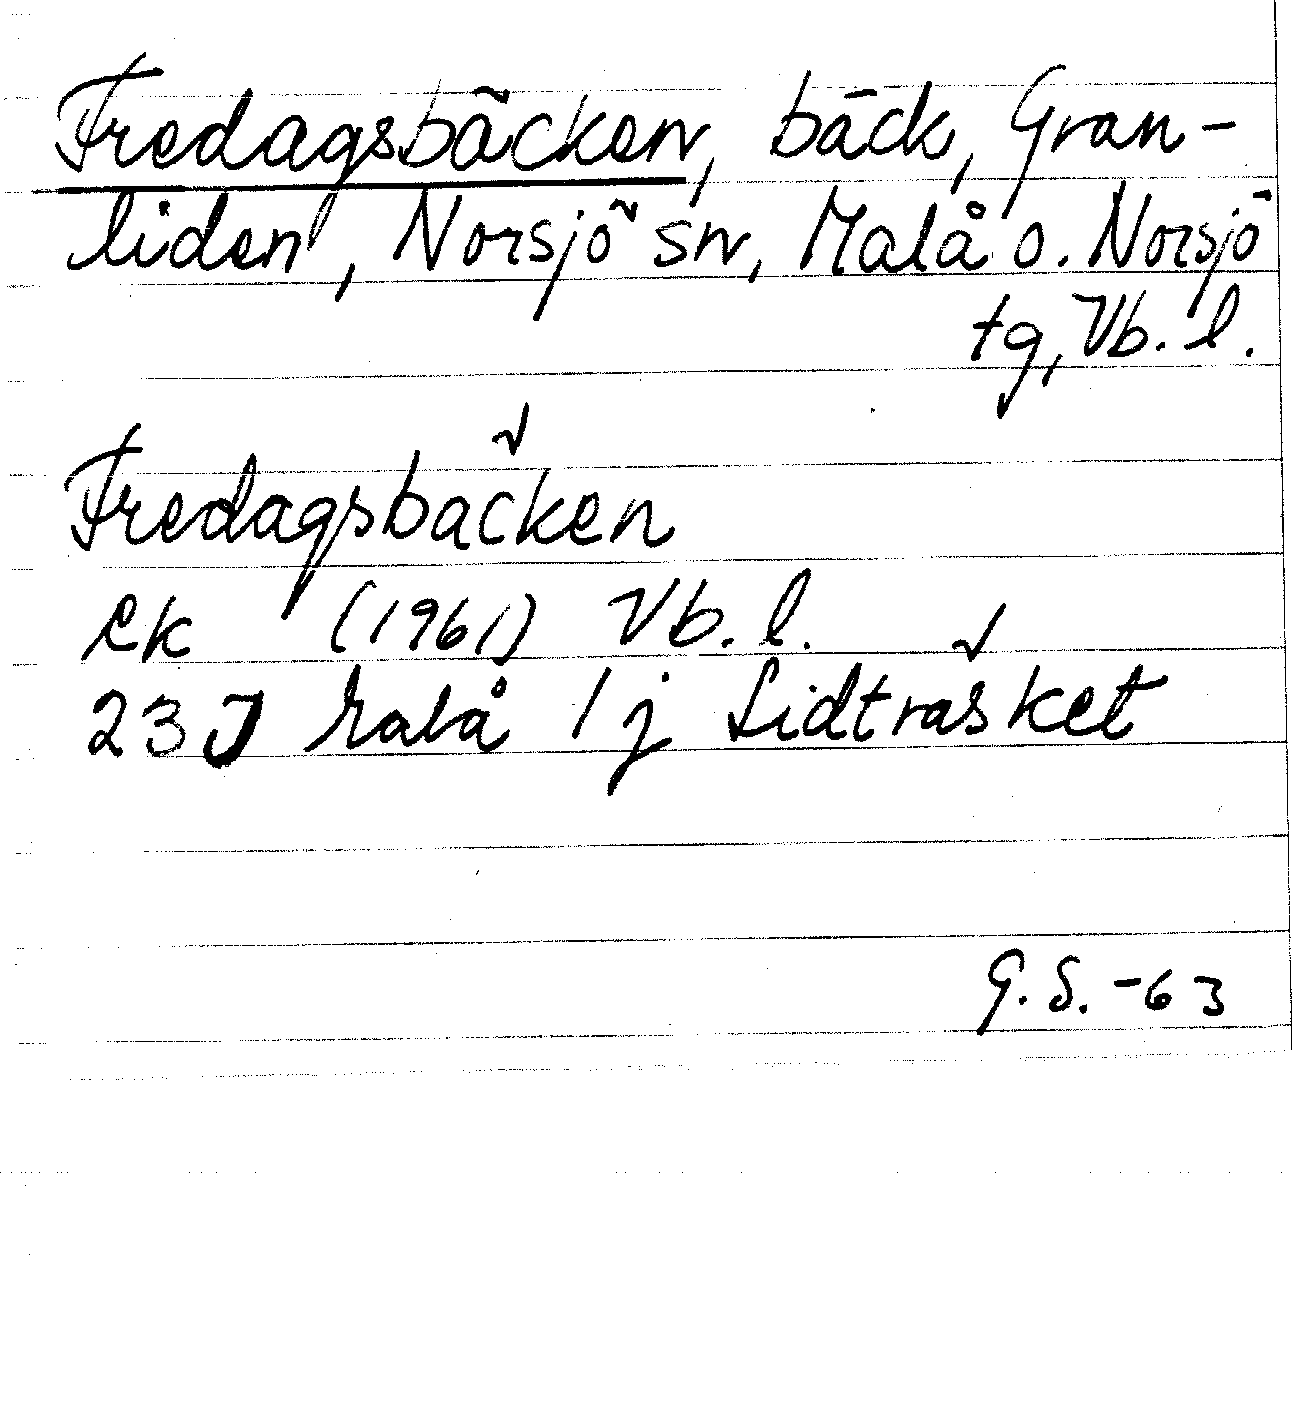 Fredagsbäcken, bäck, Gran-
liden, Norsjö sn, Malå o. Norsjö
tg, Vb. l.
Fredagsbäcken
ek (1961) Vb. l.
23J Malå 1j Lidträsket
G.S. -63